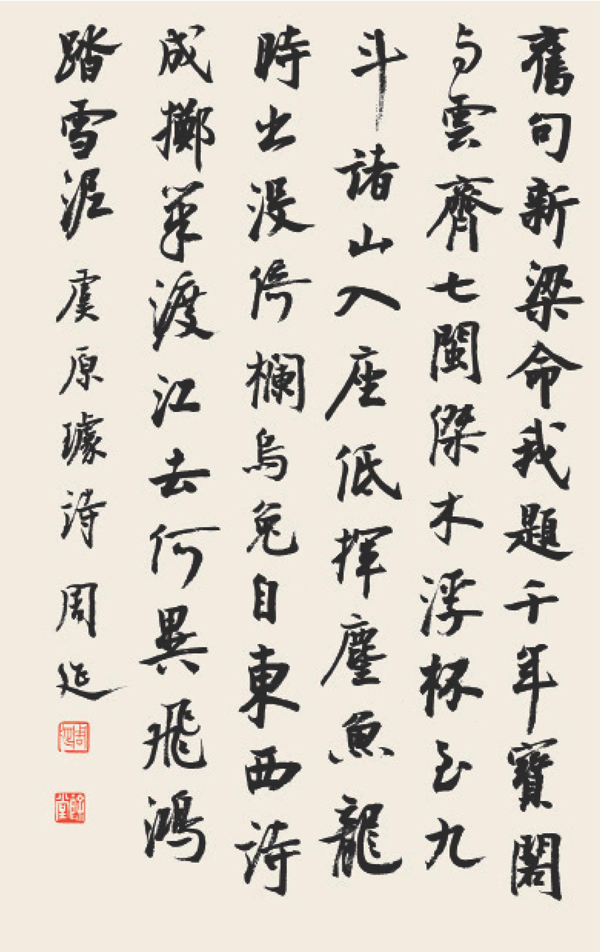 舊句新梁命我題千年寶閣
与雲齊七閩傑木浮杯至九
斗諸山入座低揮麈魚龍
時出没倚欄烏兔自東西詩
成擲筆渡江去何異飛鴻
踏雪泥 虞原璩詩 周延